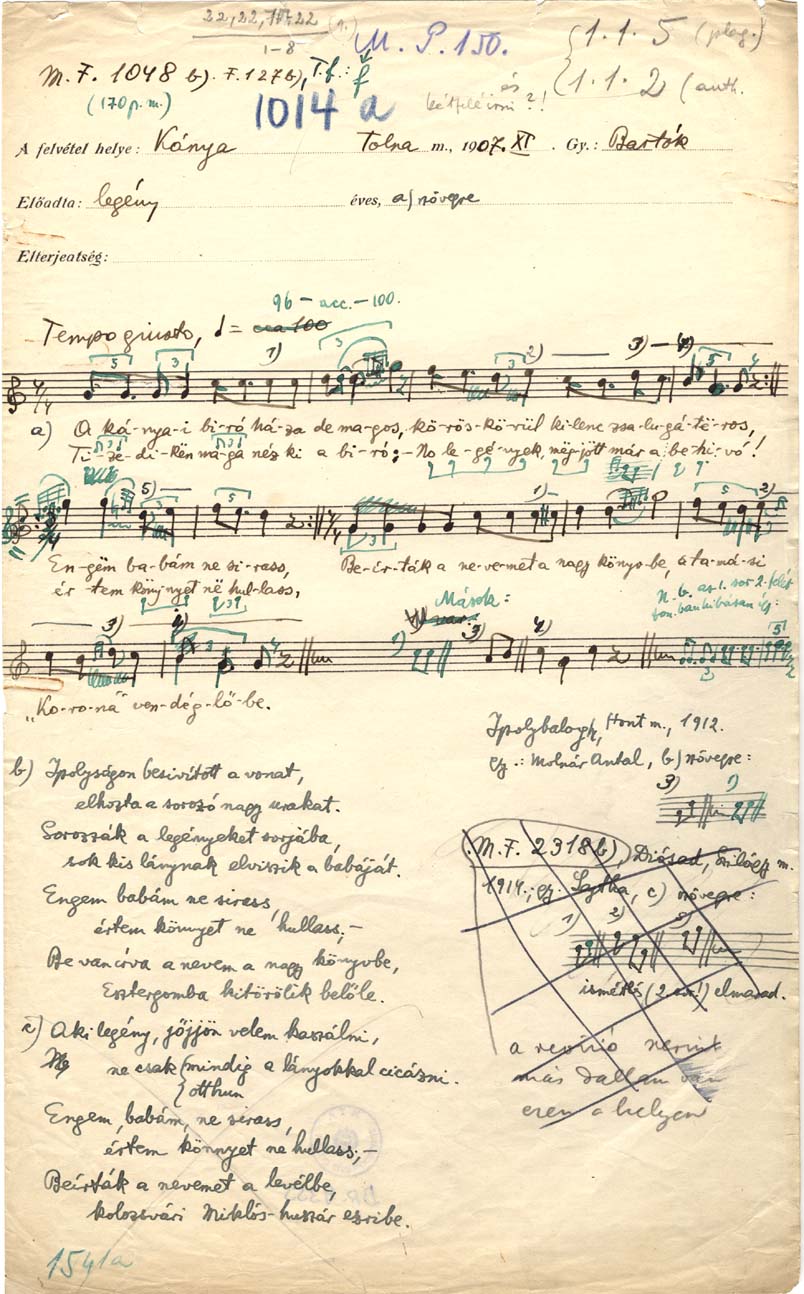 22, 22, 15, 22
1-8
M. P. 150.
1. 1. 5 (plag.)
és
1. 1. 2 (auth.
M. F. 1048 b). F. 127 b), T. f.: f
(170 p. m.)
1014 a
kétféleírni?!
A felvétel helye: Kánya Tolna m., 1907. XI. Gy.: Bartók
Előadta: legény éves, a) szövegre
Elterjeatség:
96 – acc. – 100.
Tempo giusto, ♩ = cca 100
a) A ká-nya-i bi-ró há-za de ma-gos, kö-rös-kö-rül ki-lenc zsa-lu-gá-té-ros,
Ti-ze-di-kën ma-ga néz ki a bi-ró; – No le-gé-nyek, mëg-jött már a be-hi-vó!
En-gëm ba-bám ne si-rass, Be-ér-ták a ne-ve-met a nagy köny-be, a ta-má-si
ér-tem köny-nyet në hul-lass,
Mások:
var.
N. b. az 1. sor 2. felét
„Ko-ro-ná" ven-dég-lő-be.
Ipolybalogh, Hont m., 1912.
gy.: Molnár Antal, b) szövegre:
b) Ipolyságon besivított a vonat,
elhozta a sorozó nagy urakat.
Sorozzák a legényeket sorjába,
sok kis lánynak elviszik a babáját.
Engem babám ne sirass,
értem könnyet ne hullass; –
Be van írva a nevem a nagy könyvbe,
Esztergomba kitörölik belőle.
(M. F. 2318 b), Diósad, Szilágy m.
1914.; gy.: Lajtha, c) szövegre:
ismétlés (2. sor!) elmarad.
a revízió szerint
más dallam van
ezen a helyen
c) Aki legény, jöjjön velem kaszálni,
ne csak mindig a lányokkal cicázni.
otthun
Engem, babám, ne sirass,
értem könnyet ne hullass; –
Beírták a nevemet a levélbe,
kolozsvári Miklós-huszár ezribe.
1541a